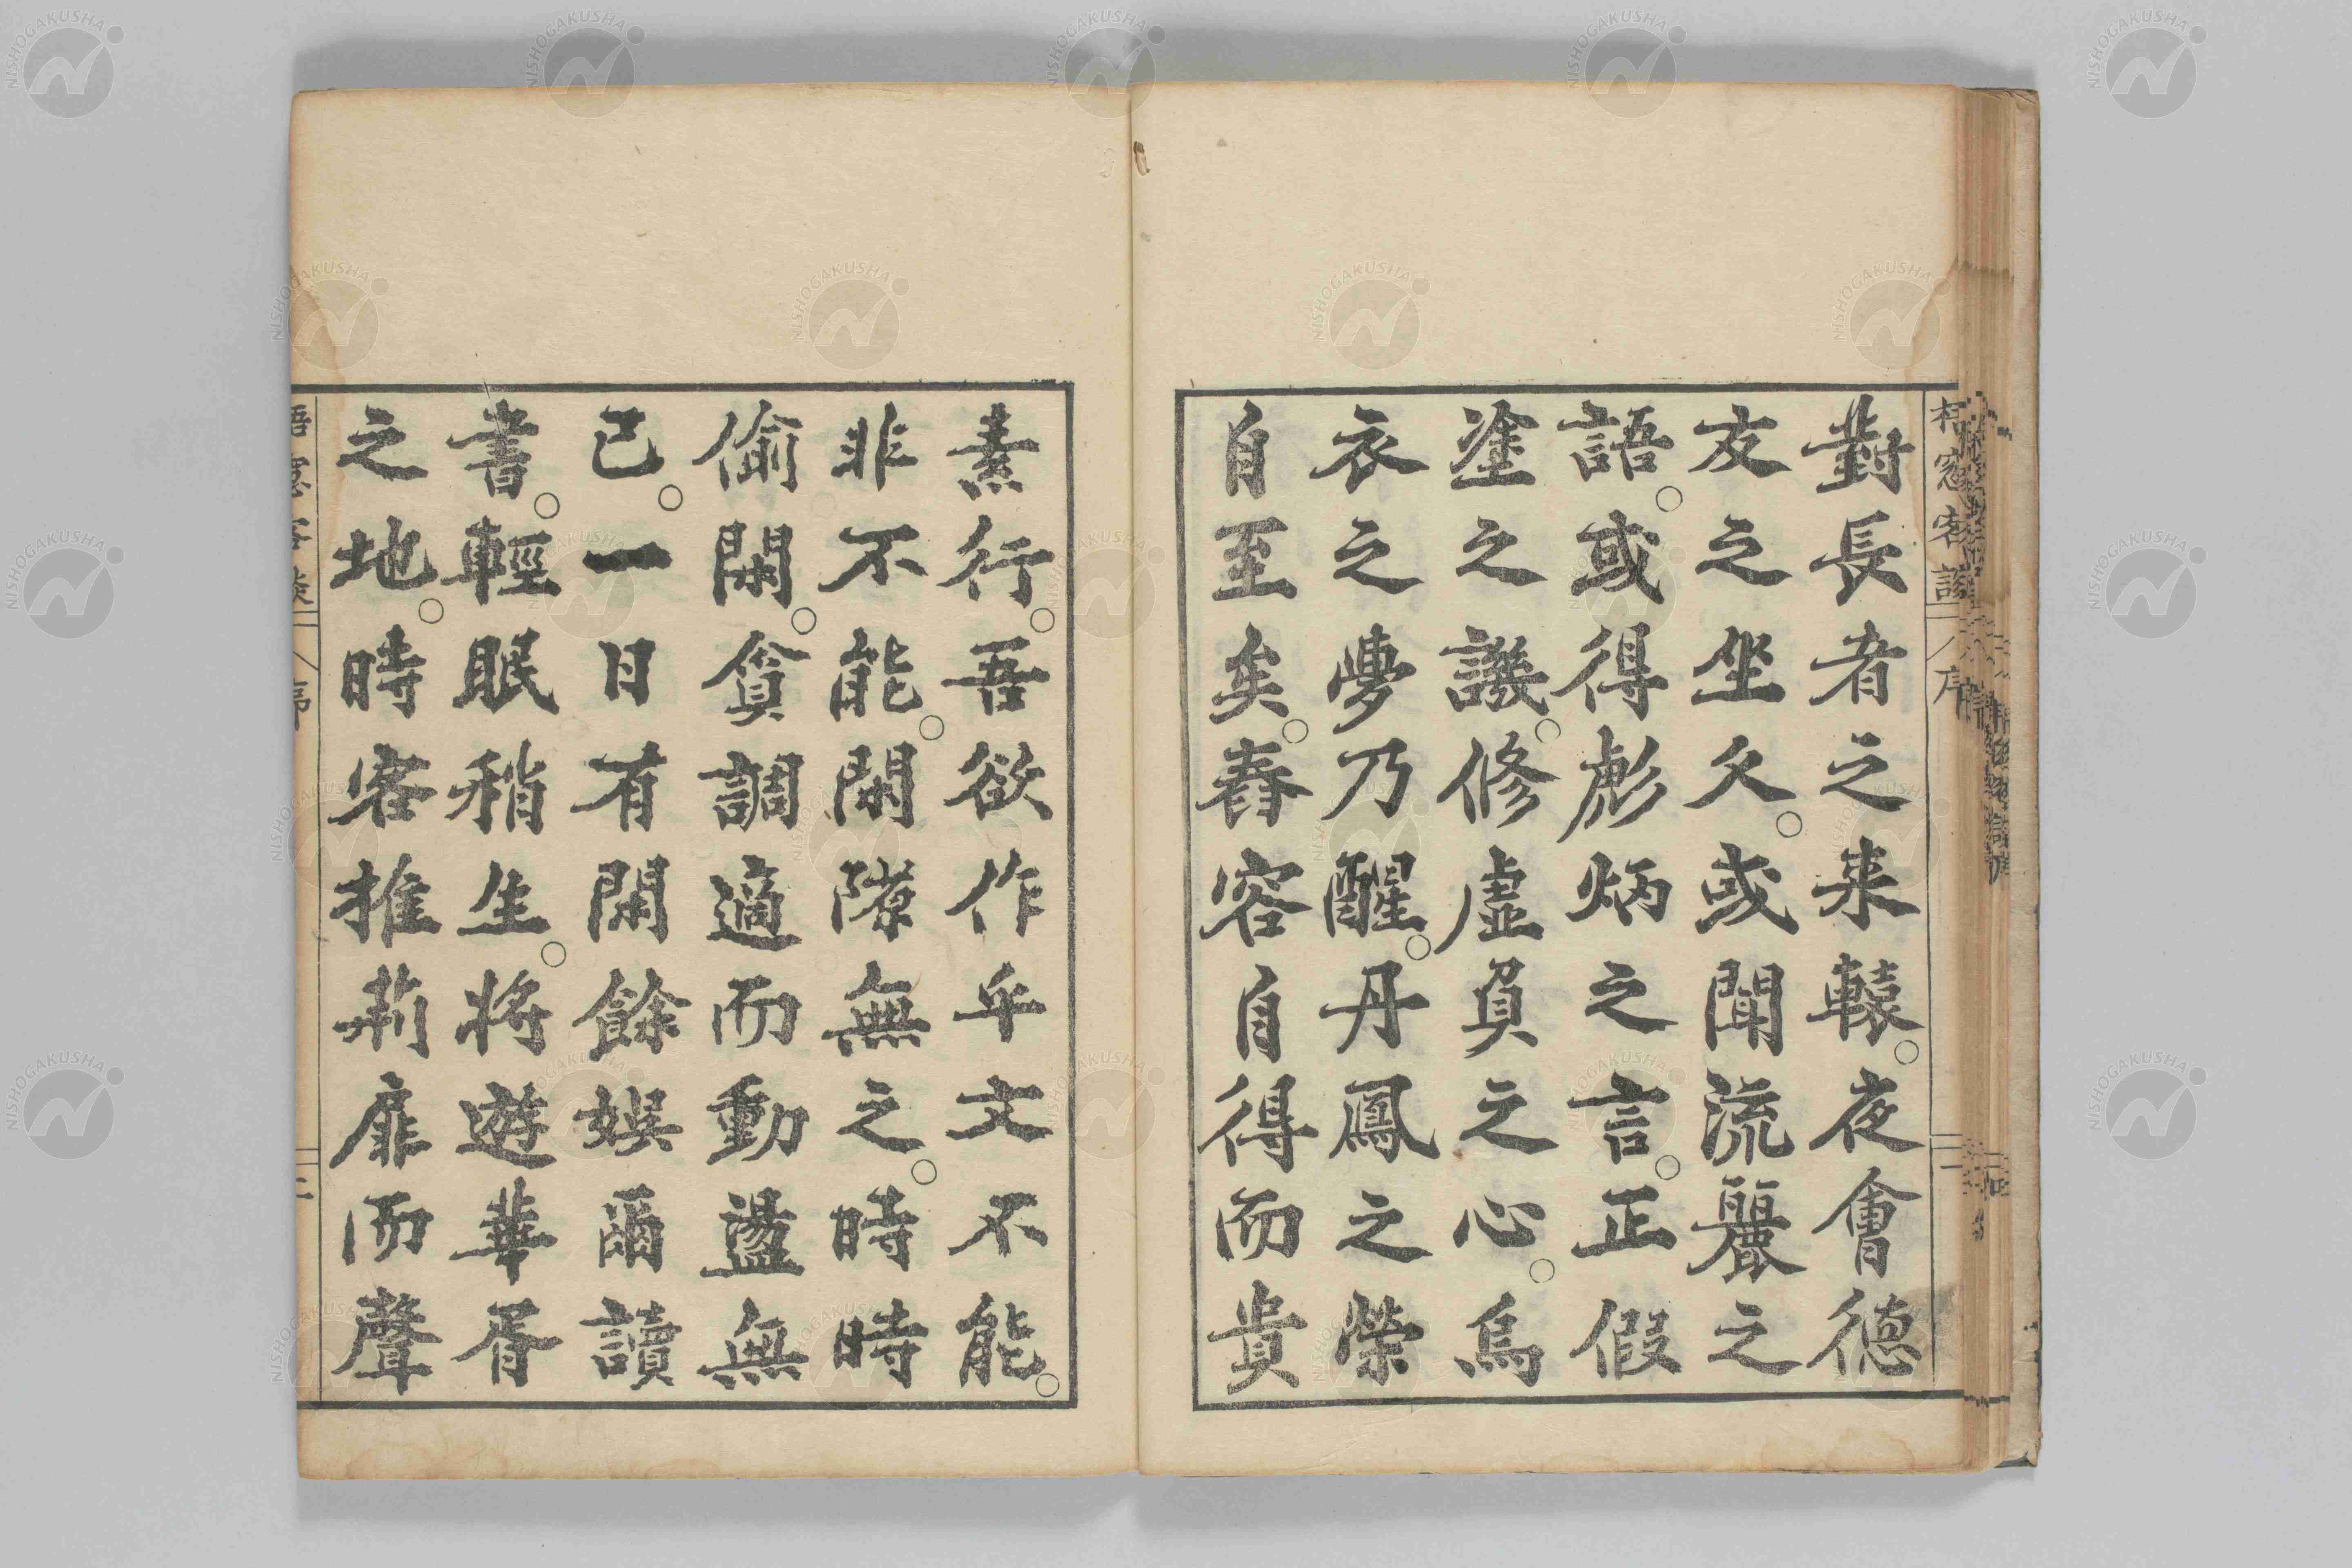 對長者之来轅。夜會德
友之坐久。或聞流麗之
語。或得彪炳之言。正假
塗之議。修虛負之心。烏
衣之夢乃醒。丹鳳之榮
自至矣。春容自得而貴
素行。吾欲作乎文不能。
非不能。閑隙無之。時時
偷閑。貪調適而動盪無
已。一日有閑餘娯爾讀
書。輕眠稍生。将遊華胥
之地。時客推荊扉而聲
序
二
NISHOGAKUSHA